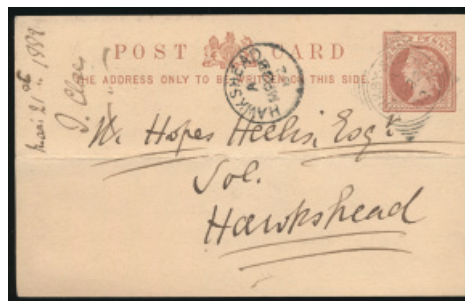 POST CARD
THE ADDRESS ONLY TO BE WRITTEN ON THIS SIDE.
HALF PENNY
HAWKSHEAD
A
W. Hopes Heelis, Esqr
Sol.
Hawkshead